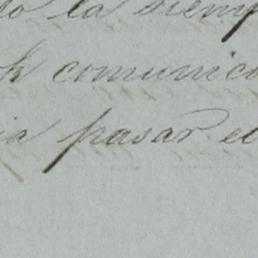 la siemp
comunica
pasar el